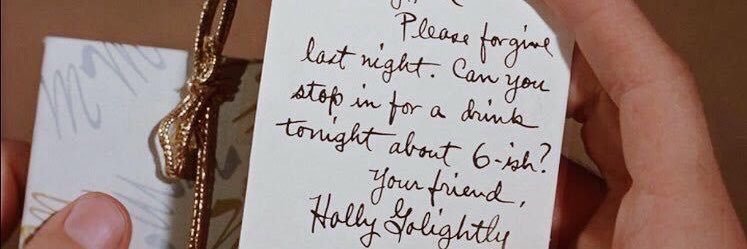 Please forgive
last night. Can you
stop in for a drink
tonight about 6-ish?
Your friend,
Holly Golightly